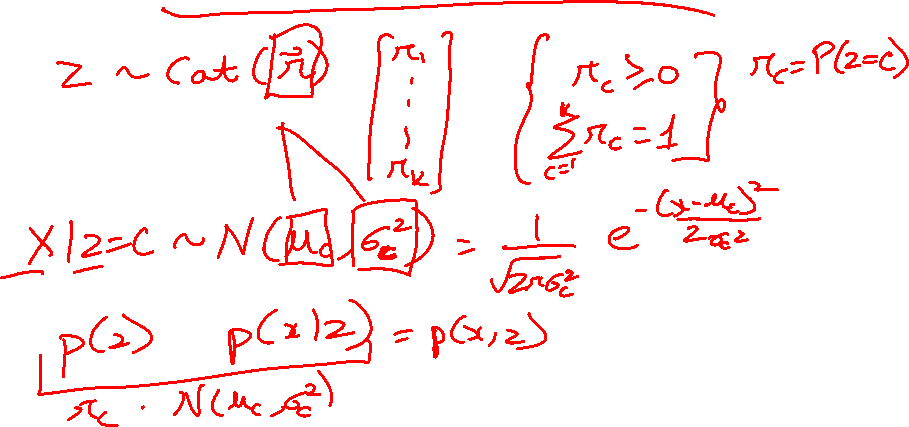 z ~ Cat(π⃗) [π₁ ⋮ π_K] { π_c ≥ 0 π_c = P(z=c)
∑_{c=1}^{K} π_c = 1
x|z=c ~ N(μ_c, σ_c²) = 1/√(2πσ_c²) e^{-(x-μ_c)²/2σ_c²}
p(z) p(x|z) = p(x,z)
π_c · N(μ_c, σ_c²)